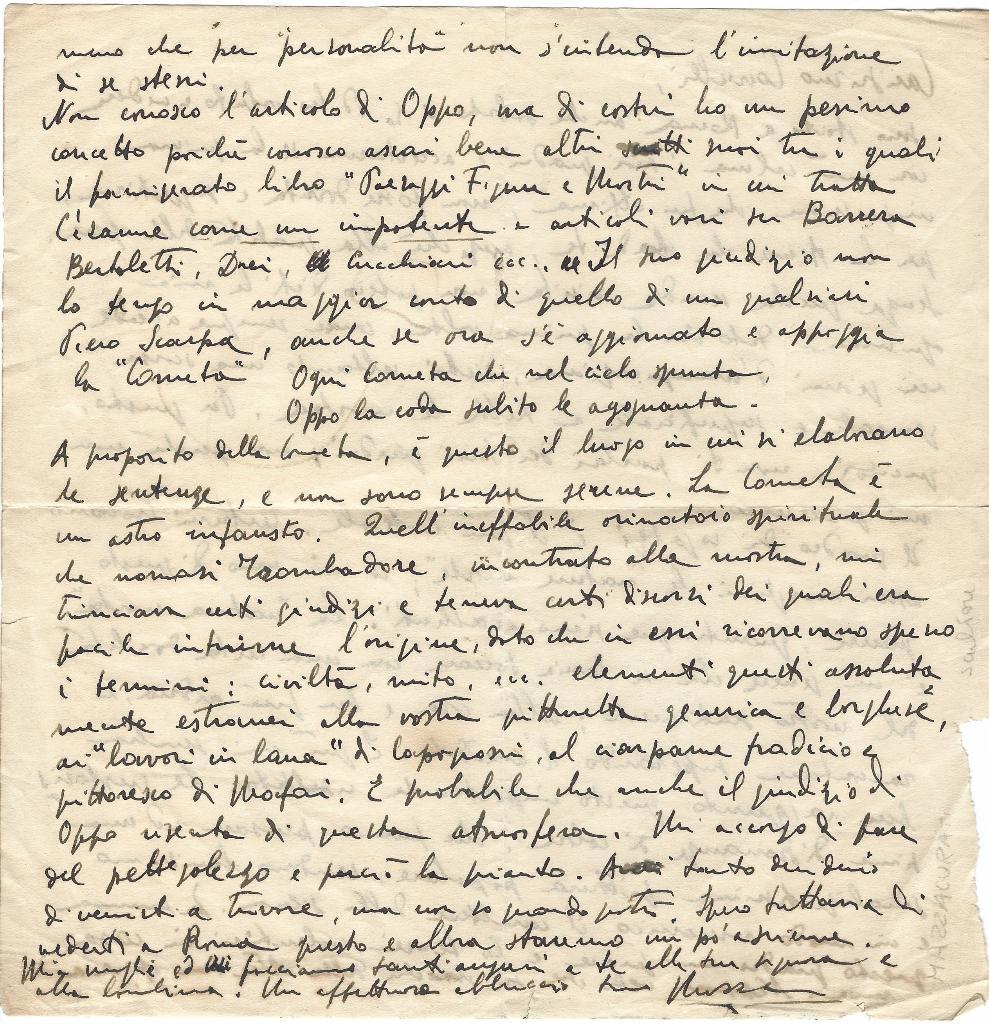 meno che per "personalità" non s'intenda l'imitazione
di se stessi.
Non conosco l'articolo di Oppo, ma di costui ho un pessimo
concetto poiché conosco assai bene altri suoi tra i quali
il famigerato libro "Paesaggi Figure e Mostri" in cui tratta
Cézanne come un impotente e articoli vari su Barrera
Bertoletti, Drei, Cucchiari ecc.. Il suo giudizio non
lo tengo in maggior conto di quello di un qualsiasi
Piero Scarpa, anche se ora s'è aggiornato e appoggia
la "Cometa" Ogni Cometa che nel cielo spunta,
Oppo la coda subito le agguanta.
A proposito della Cometa, è questo il luogo in cui si elaborano
le sentenze, e non sono sempre serene. La Cometa è
un astro infausto. Quell'ineffabile orinatoio spirituale
che nomasi Trombadore, incontrato alla mostra, mi
trinciava certi giudizi e teneva certi discorsi dei quali era
facile intuirne l'origine, dato che in essi ricorrevano spesso
i termini: civiltà, mito, ecc. elementi questi assoluta
mente estranei alla vostra pitturetta generica e borghese,
ai "lavori in lana" di Capogrossi, al ciarpame fradicio e
pittoresco di Mafai. È probabile che anche il giudizio di
Oppo risenta di questa atmosfera. Mi accorgo di fare
del pettegolezzo e perciò la pianto. tanto desiderio
di venirti a trovare, ma non so quando potrò. Spero tuttavia di
vederti a Roma presto e allora staremo un po' assieme.
Mia moglie ed facciamo tanti auguri a te alla tua signora e
alla bambina. Un affettuoso abbraccio tuo